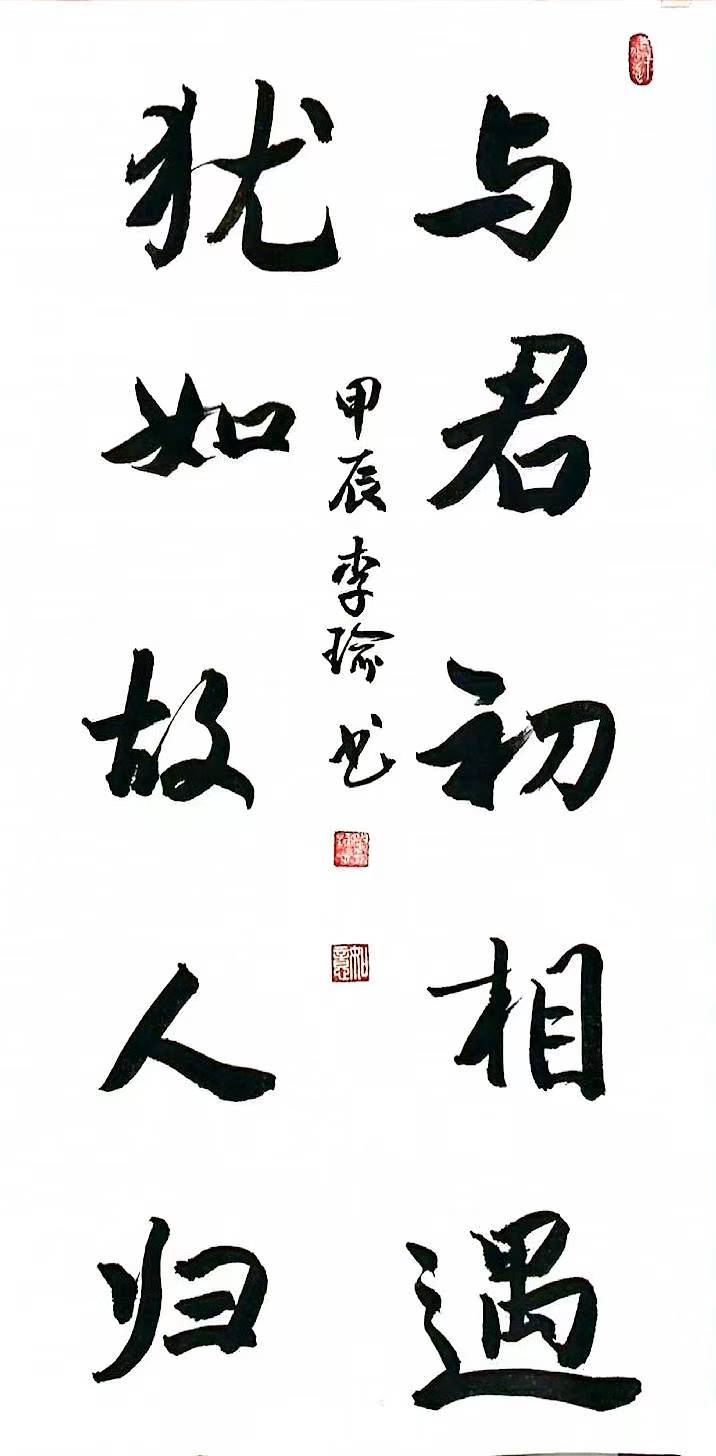 与君初相遇
犹如故人归
甲辰李瑜书